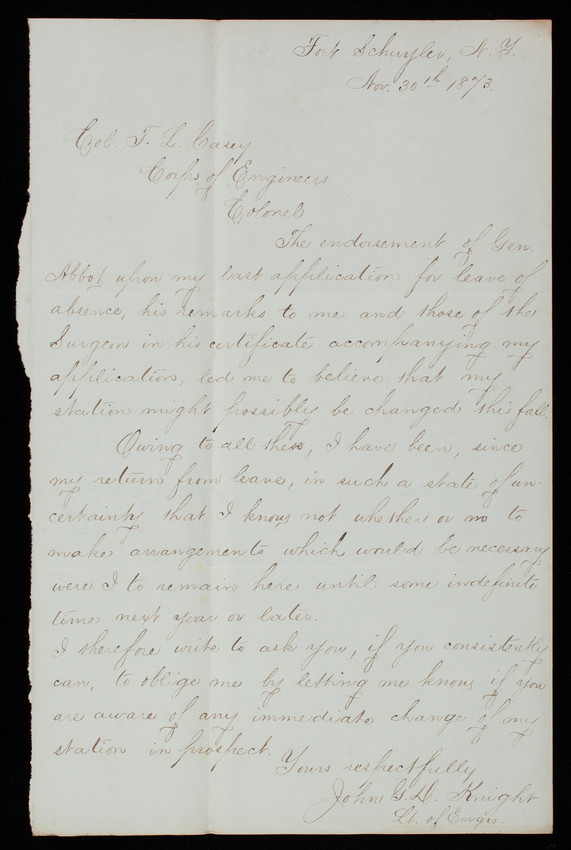 Fort Schuyler, N. Y.
Nov. 30th 1873.
Col. T. L. Casey
Corps of Engineers
Colonel
The endorsement of Gen.
Abbot upon my last application for leave of
absence, his remarks to me and those of the
Surgeon in his certificate accompanying my
application, led me to believe that my
station might possibly be changed this fall.
Owing to all these, I have been, since
my return from leave, in such a state of un-
certainty that I know not whether or no to
make arrangements which would be necessary
were I to remain here until some indefinite
time next year or later.
I therefore write to ask you, if you consistently
can, to oblige me by letting me know if you
are aware of any immediate change of my
station in prospect.
Yours respectfully
John G. D. Knight
Lt. of Engrs.